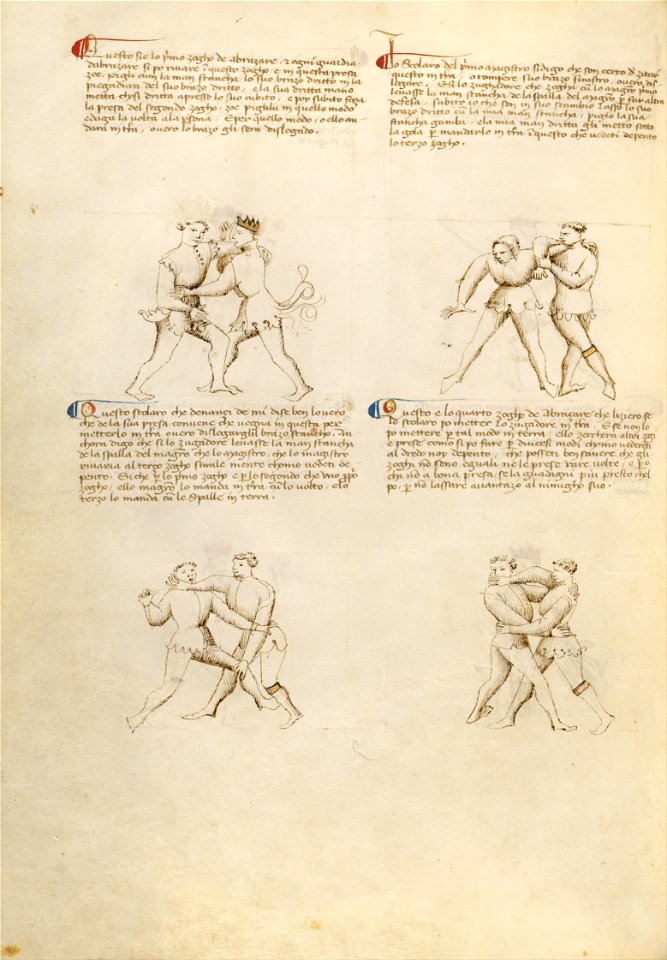 Questo sie lo pmo zogho de abrazare, & ogni guardia
dabrazare si po rivare i questo zogho e in questa presa
zoe, pigli cum la man stancha, lo suo brazo dritto in la
piegadura del suo brazo dritto, ela sua dritta mano
metta chosi dritta apresso lo suo cubito, e poy subito faza
la presa del segondo zogho, zoe piglilu in quello modo
edaga la volta ala psona. E per quello modo, o ello an-
dara in tra, overo lo brazo gli sera dislogado.
Io Scolaro del pmo magistro sidigo che son certo d zitar
questo in tra, o rompere suo brazo sinistro, overo dis-
legare. E si lo zughadore che zugha cu lo magro pmo
levasse la man stancha de la spalla del magro p far altra
defesa, subito io che son in suo scambio lasso lo suo
brazo dritto cu la mia man stancha, e piglo la sua
stancha gamba, ela mia man dritta gli metto sotto
la gola p mandarlo in tra i questo che vedeti depento
lo terzo zogho.
Questo scolaro che denanci de mi dise ben lo vero
che de la sua presa convene che vegna in questa per
metterlo in tra overo dislogargli l brazo stancho. An
chora digo che si lo zugadore levasse la man stancha
de la spalla del magro che lo magistro, che lo magistro
rivaria al terço zogho simile mente chomo vedeti de
pento. Si che p lo pmo zogho e p lo segondo che uno ppo
zogho, ello magro lo manda in tra cu lo volto, e lo
terzo lo manda cu le spalle in terra.
Questo e lo quarto zogho de abraçare che liziero se
lo scolaro po metter lo zugadore in tra. E se non lo
po mettere p tal modo in terra, ello zerchera altri zoghi
e prese como si po fare p diversi modi chomo vederiti
al dredo noy depento, che posseti ben savere che gli
zoghi nõ sono eguali ne le prese rare volte, e po
chi nõ a bona presa se la guadagni piu presto chel
po, p nõ lassare avantazo al nimigho suo.